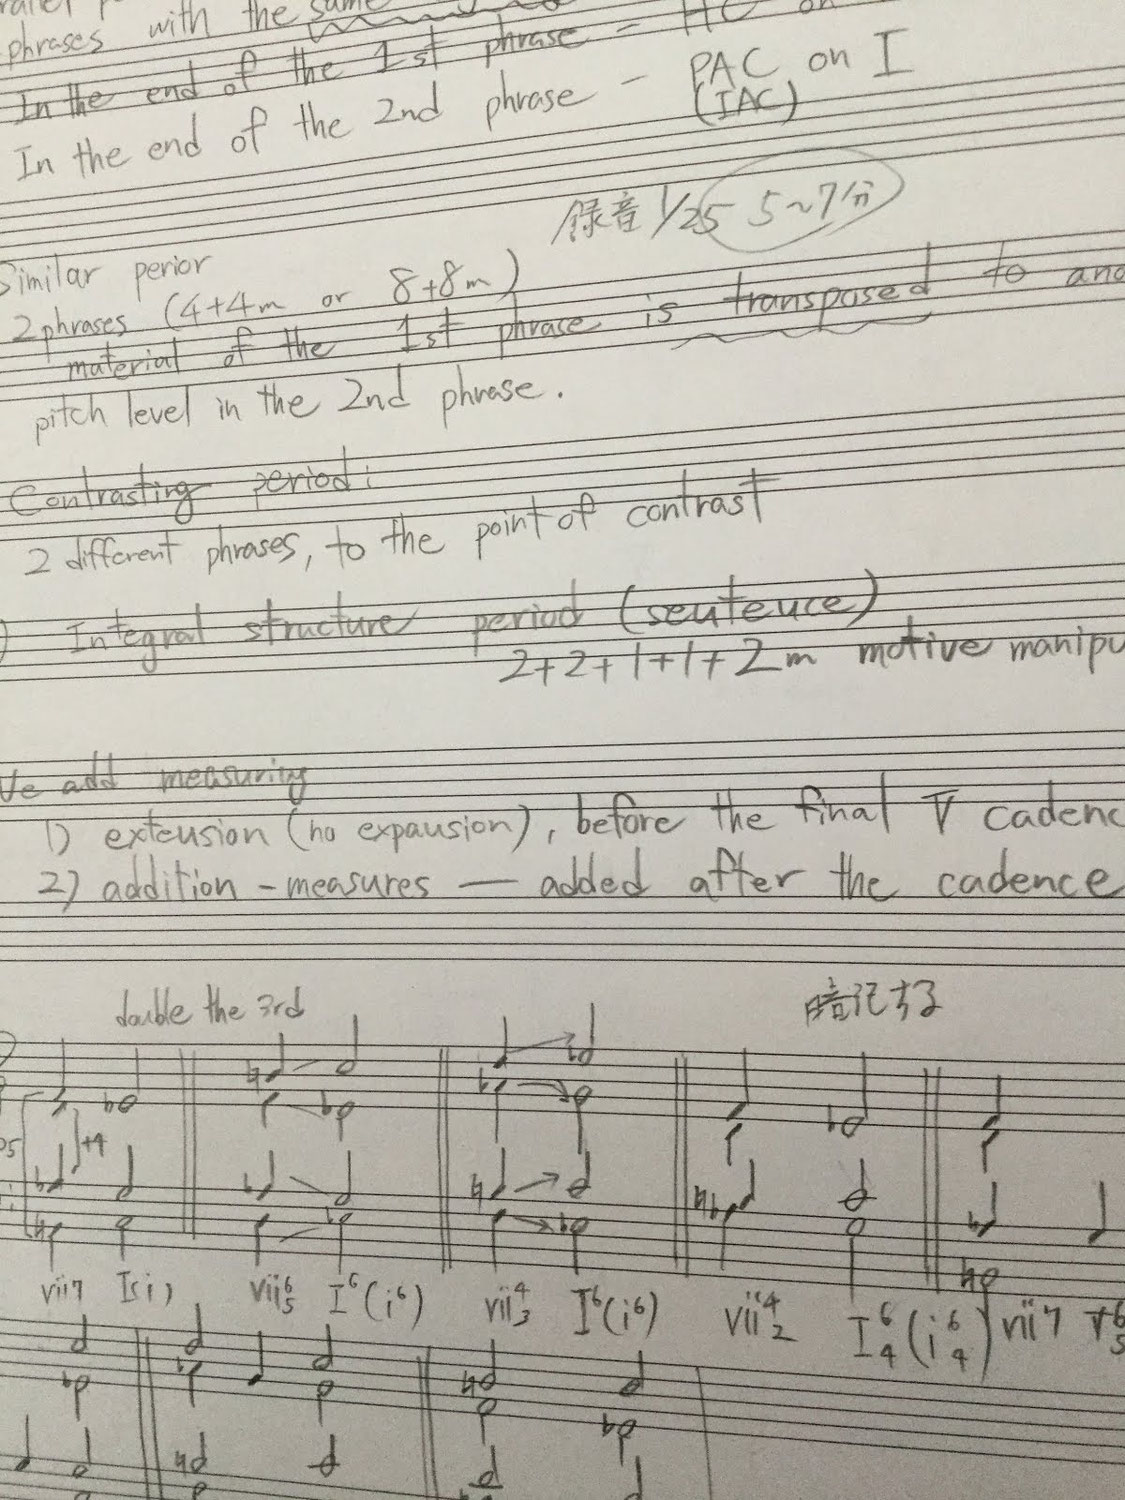 phrases with the same
In the end of the 1st phrase = HC on
In the end of the 2nd phrase - PAC on I
(IAC)
録音 1/25 5~7分
Similar perior
2 phrases (4+4m or 8+8m)
material of the 1st phrase is transposed to ano
pitch level in the 2nd phrase.
Contrasting period:
2 different phrases, to the point of contrast
Integral structure period (sentence)
2+2+1+1+2m motive manipu
We add measuring
1) extension (no expansion), before the final V cadenc
2) addition - measures — added after the cadence
double the 3rd
暗記する
+4
vii7 I(i) vii6/5 I6(i6) vii4/3 I6(i6) vii4/2 I6/4(i6/4) vii7 V6/5